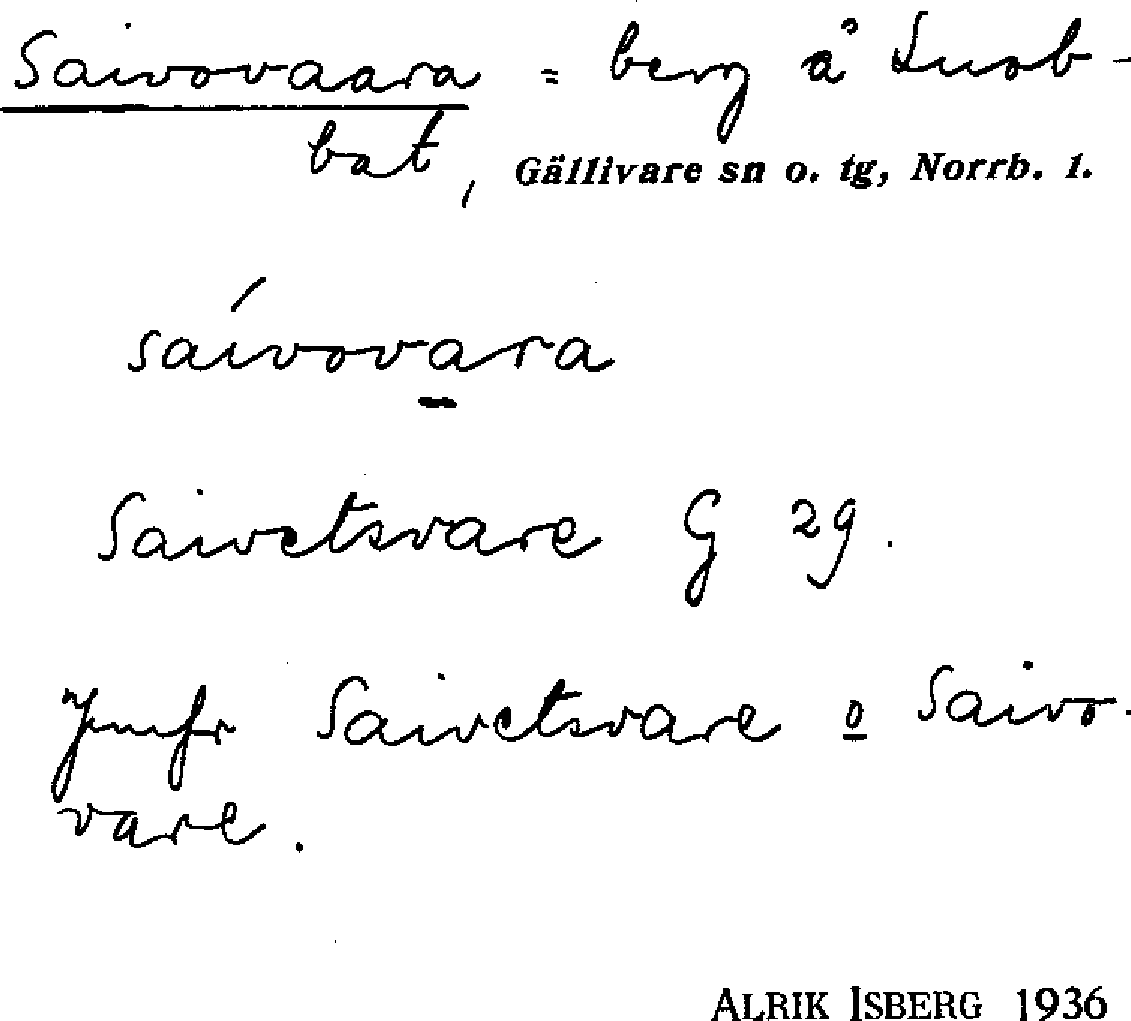 Saivovaara = berg å Luob-
bat, Gällivare sn o. tg, Norrb. l.
sáivovara
Saivetsvare G 29.
Jmfr Saivetsvare o Saivo-
vare.
ALRIK ISBERG 1936